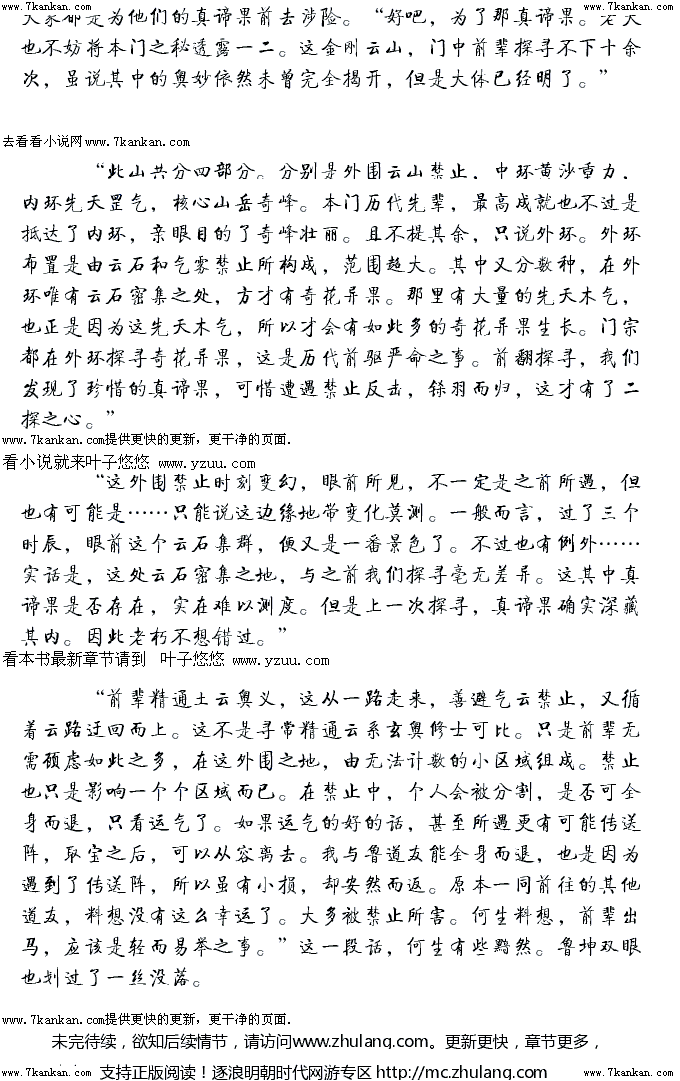 www.7kankan.com www.7kankan.com
大家都是为他们的真谛果前去涉险。“好吧，为了那真谛果。老夫
也不妨将本门之秘透露一二。这金刚云山，门中前辈探寻不下十余
次，虽说其中的奥妙依然未曾完全揭开，但是大体已经明了。”
去看看小说网www.7kankan.com
“此山共分四部分。分别是外围云山禁止．中环黄沙重力．
内环先天罡气，核心山岳奇峰。本门历代先辈，最高成就也不过是
抵达了内环，亲眼目的了奇峰壮丽。且不提其余，只说外环。外环
布置是由云石和气雾禁止所构成，范围超大。其中又分数种，在外
环唯有云石密集之处，方才有奇花异果。那里有大量的先天木气，
也正是因为这先天木气，所以才会有如此多的奇花异果生长。门宗
都在外环探寻奇花异果，这是历代前驱严命之事。前翻探寻，我们
发现了珍惜的真谛果，可惜遭遇禁止反击，铩羽而归，这才有了二
探之心。”
www.7kankan.com提供更快的更新，更干净的页面.
看小说就来叶子悠悠 www.yzuu.com
“这外围禁止时刻变幻，眼前所见，不一定是之前所遇，但
也有可能是……只能说这边缘地带变化莫测。一般而言，过了三个
时辰，眼前这个云石集群，便又是一番景色了。不过也有例外……
实话是，这处云石密集之地，与之前我们探寻毫无差异。这其中真
谛果是否存在，实在难以测度。但是上一次探寻，真谛果确实深藏
其内。因此老朽不想错过。”
看本书最新章节请到 叶子悠悠 www.yzuu.com
“前辈精通土云奥义，这从一路走来，善避气云禁止，又循
着云路迂回而上。这不是寻常精通云系玄奥修士可比。只是前辈无
需顾虑如此之多，在这外围之地，由无法计数的小区域组成。禁止
也只是影响一个个区域而已。在禁止中，个人会被分割，是否可全
身而退，只看运气了。如果运气的好的话，甚至所遇更有可能传送
阵，取宝之后，可以从容离去。我与鲁道友能全身而退，也是因为
遇到了传送阵，所以虽有小损，却安然而返。原本一同前往的其他
道友，料想没有这么幸运了。大多被禁止所害。何生料想，前辈出
马，应该是轻而易举之事。”这一段话，何生有些黯然。鲁坤双眼
也划过了一丝没落。
www.7kankan.com提供更快的更新，更干净的页面.
未完待续，欲知后续情节，请访问www.zhulang.com。更新更快，章节更多，
www.7kankan.com 支持正版阅读！逐浪明朝时代网游专区 http://mc.zhulang.com www.7kankan.com